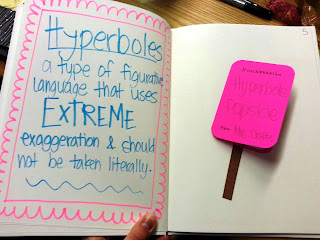 Hyperboles
a type of figurative
language that uses
EXTREME
exaggeration & should
not be taken literally.
5
Hyperbole
Popsicle